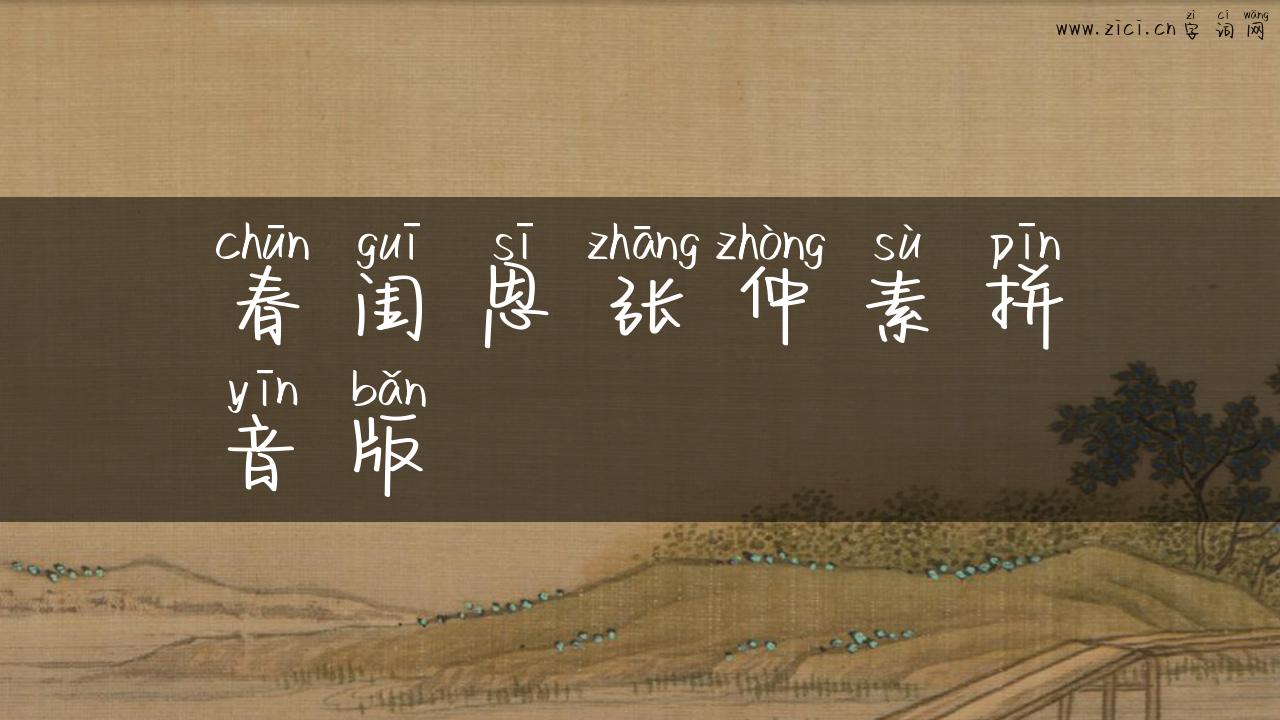 zì cí wǎng
www.zici.cn 字词网
chūn guī sī zhāng zhòng sù pīn
春闺思张仲素拼
yīn bǎn
音版